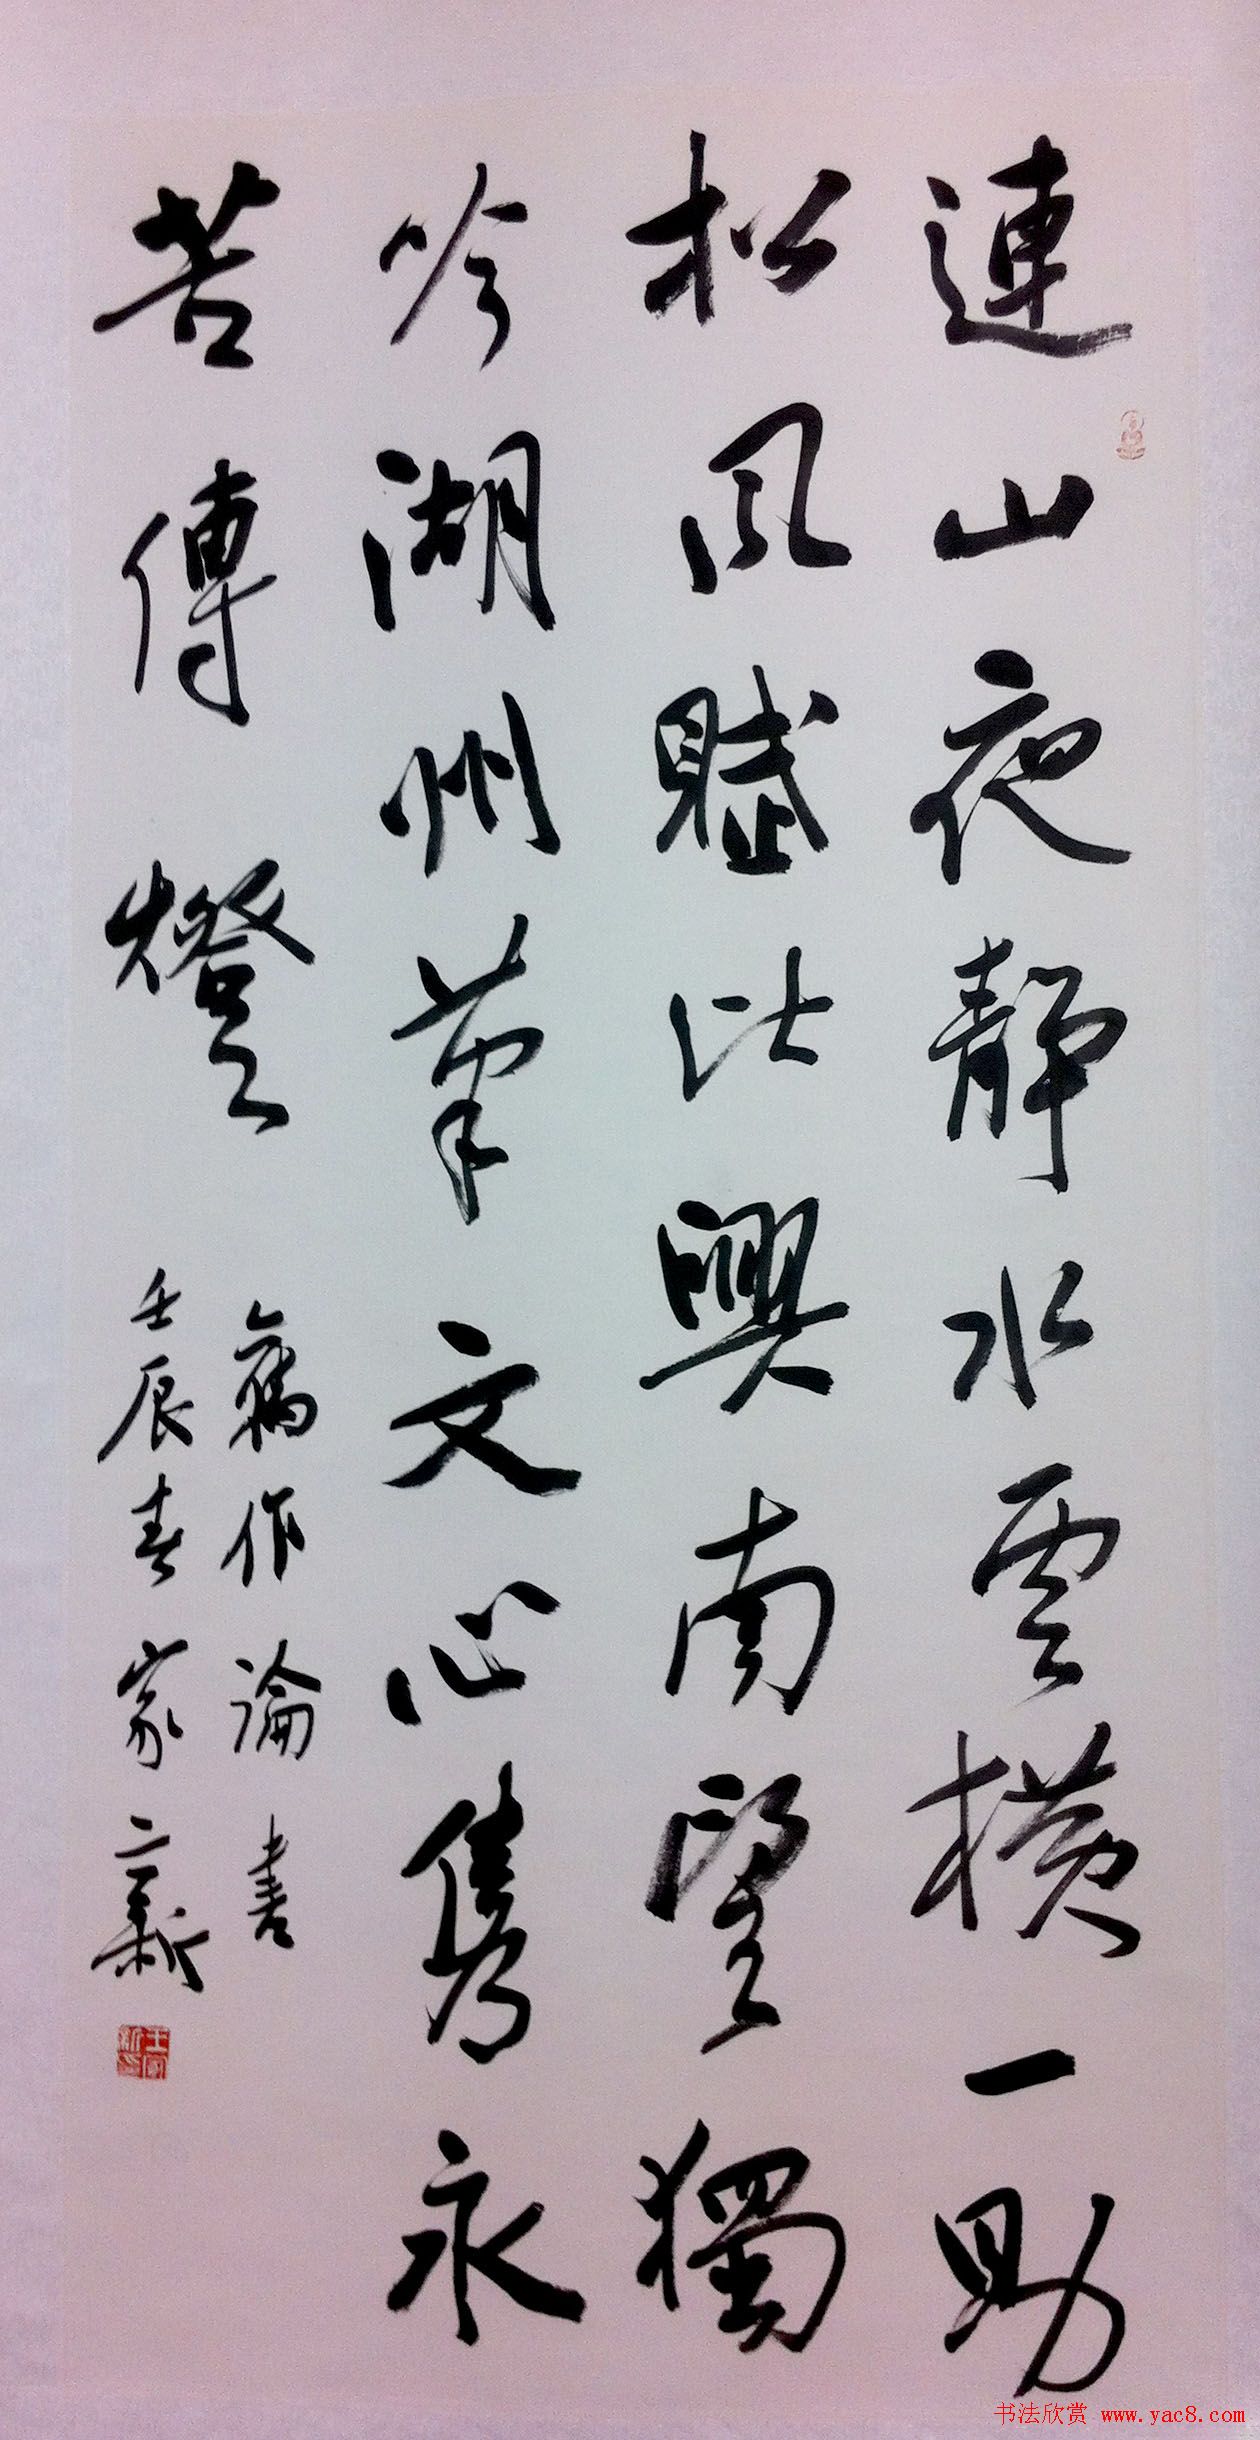 連山夜靜水雲橫一助
松風賦比興南望獨
吟湖州筆文心雋永
苦傳燈
舊作論書
壬辰春家新
王家新
书法欣赏 www.yac8.com